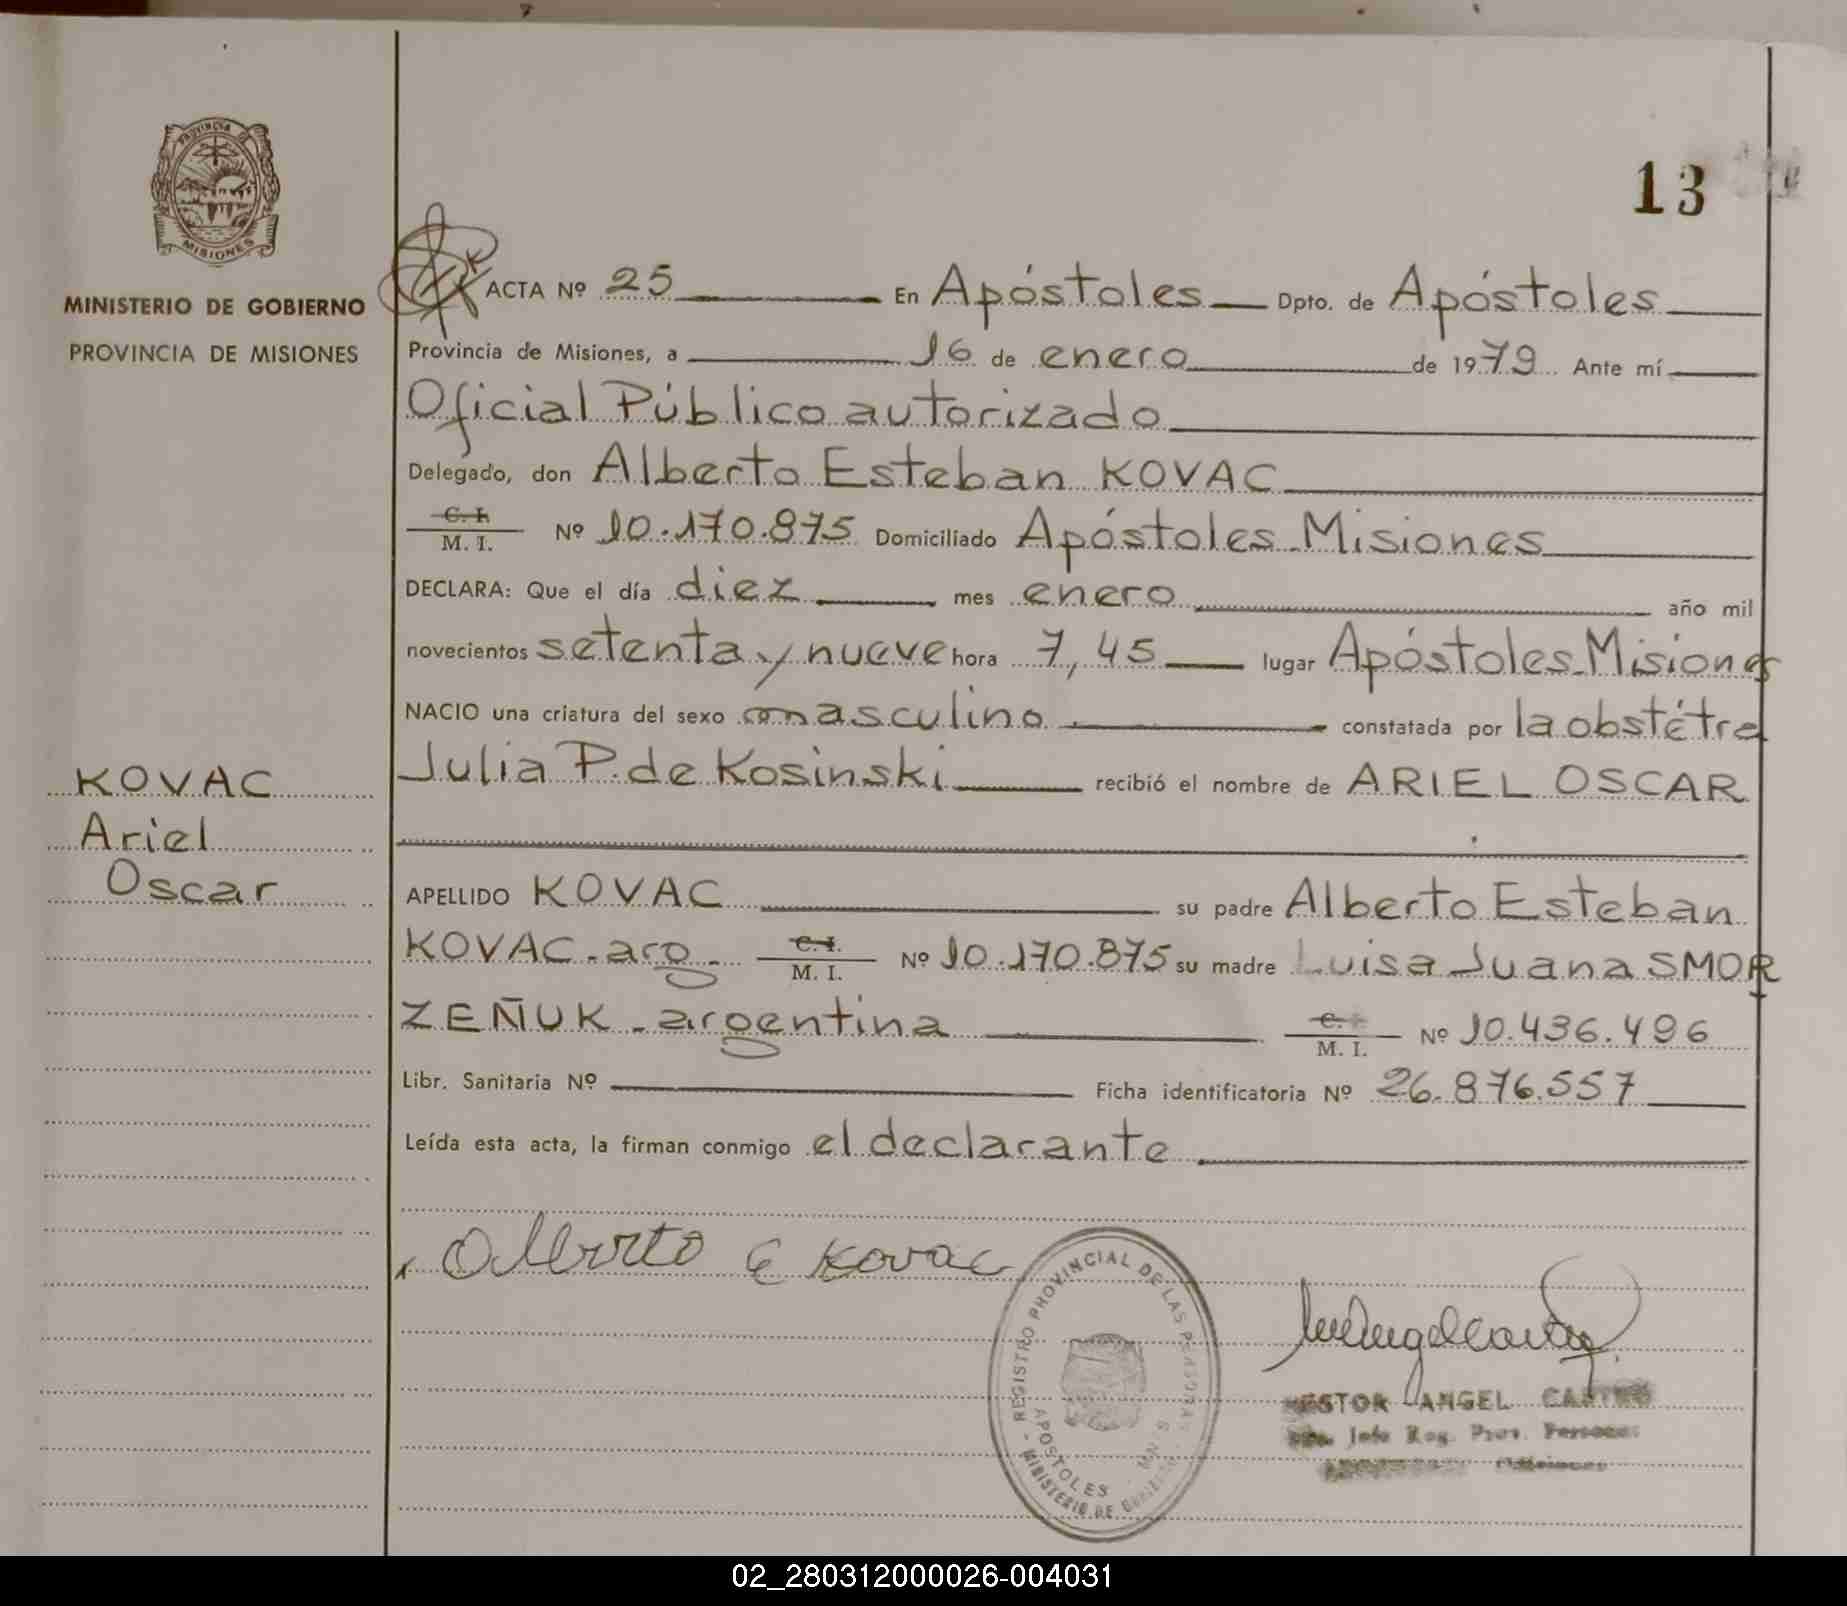 PROVINCIA DE
MISIONES
MINISTERIO DE GOBIERNO
PROVINCIA DE MISIONES
13
ACTA Nº 25 En Apóstoles Dpto. de Apóstoles
Provincia de Misiones, a 16 de enero de 1979 Ante mí
Oficial Público autorizado
Delegado, don Alberto Esteban KOVAC
C. I.
M. I. Nº 10.170.875 Domiciliado Apóstoles Misiones
DECLARA: Que el día diez mes enero año mil
novecientos setenta y nueve hora 7,45 lugar Apóstoles Misiones
NACIO una criatura del sexo masculino constatada por la obstétra
Julia P. de Kosinski recibió el nombre de ARIEL OSCAR
KOVAC
Ariel
Oscar
APELLIDO KOVAC su padre Alberto Esteban
KOVAC - arg - C. I.
M. I. Nº 10.170.875 su madre Luisa Juana SMOR
ZEÑUK - argentina C. I.
M. I. Nº 10.436.496
Libr. Sanitaria Nº Ficha identificatoria Nº 26.876.557
Leída esta acta, la firman conmigo el declarante
Alberto E Kovac
REGISTRO PROVINCIAL DE LAS PERSONAS
APOSTOLES
MINISTERIO DE GOBIERNO
ANGEL
Jefe Reg. Prov. Personas
Misiones
02_280312000026-004031